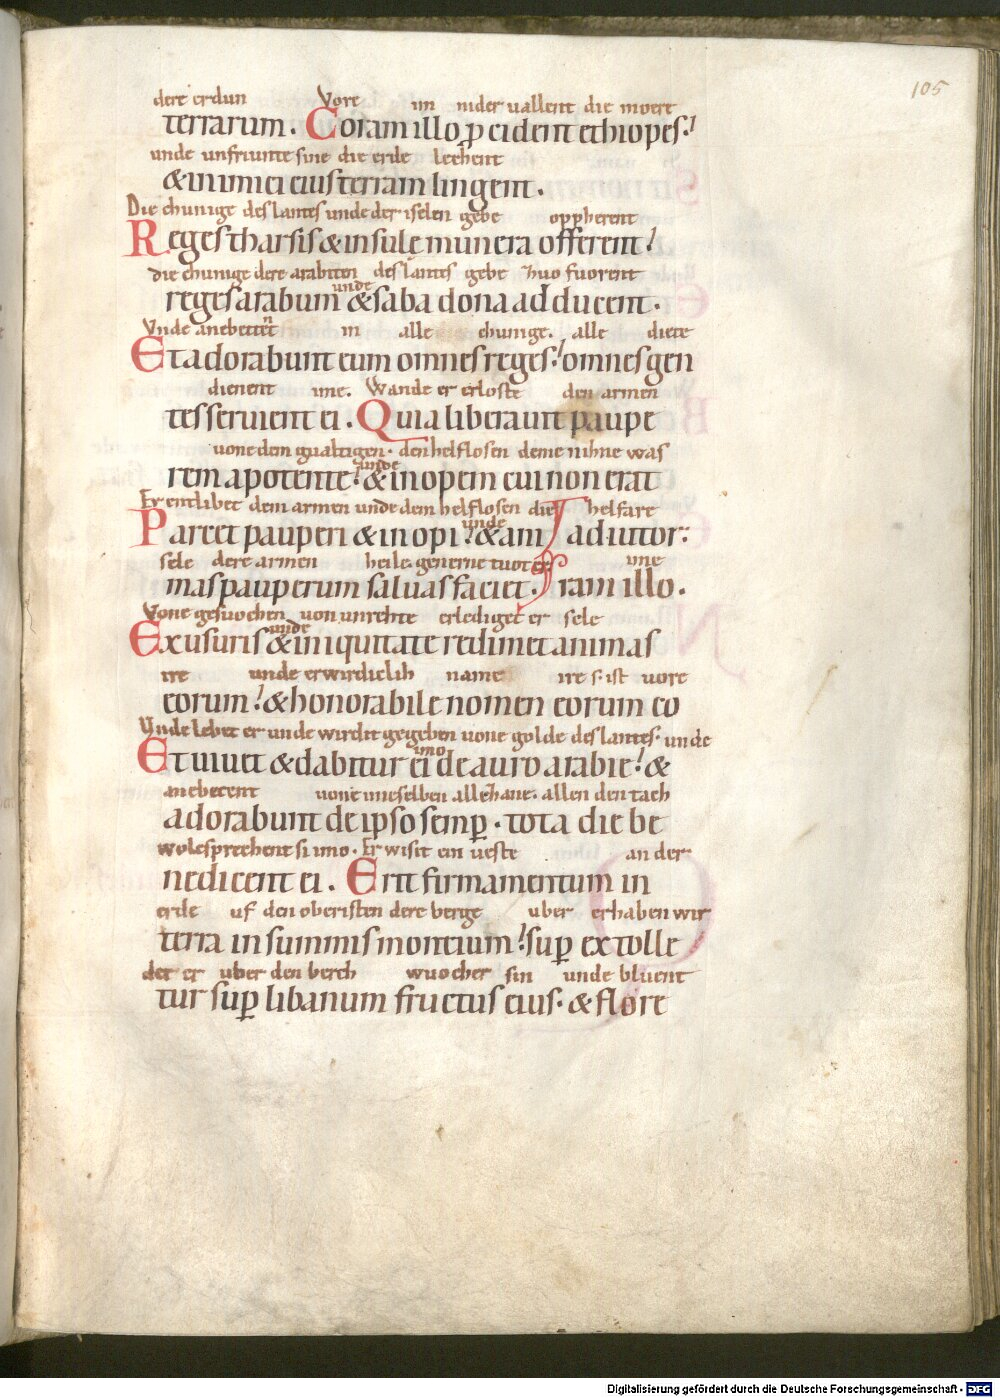 105
dere erdun Vore im nider uallent die moere
terrarum. Coram illo p̱cident ethiopes.
unde unfriunte sine die erde lechent
& inimici eius terram lingent.
Die chunige des lantes unde der iselen gebe oppherent
Reges tharsis & insulę munera offerent.
die chunige dere arabiten des lantes gebe zuo fuorent
unde
reges arabum & saba dona adducent.
Vnde anebettent in alle chunige. alle diete
Et adorabunt eum omnes reges. omnes gen
dienent ime. Wande er erloste den armen
tes seruient ei. Quia liberauit paupe
uone dem gualtigen. den helflosen deme nihne was
unde
rem a potente. & inopem cui non erat
Er entlibet dem armen unde dem helflosen die helfare
unde
Parcet pauperi & inopi. & ani adiutor:
sele dere armen heile geneme tuot er ime
mas pauperum saluas faciet.
Vone gesuochen von unrehte erlediget er sele
unde
Ex usuris & iniquitate redimet animas
ire unde erwirdiclih name ire s. ist uore
eorum. & honorabile nomen eorum co
ram illo.
Unde lebet er unde wirdit gegeben uone golde des lantes. unde
imo
Et uiuet & dabitur ei de auro arabie. &
anebetent uone imeselben allezane. allen den tach
adorabunt de ipso semp̱. tota die be
wolesprechent si imo. Er wisit ein ueste an der
nedicent ei. Erit firmamentum in
erde uf den oberisten dere berge uber erhaben wir
terra in summis montium. sup̱ extolle
det er uber den berch wuocher sin unde bluent
tur sup̱ libanum fructus eius. & flore
Digitalisierung gefördert durch die Deutsche Forschungsgemeinschaft - DFG